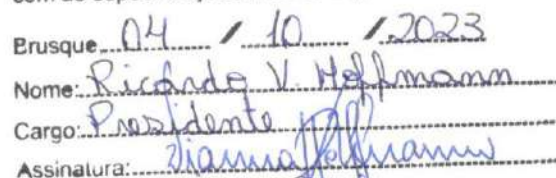 Brusque 04 / 10 / 2023
Nome: Ricardo V. Hoffmann
Cargo: Presidente
Assinatura: Vianna Hoffmann